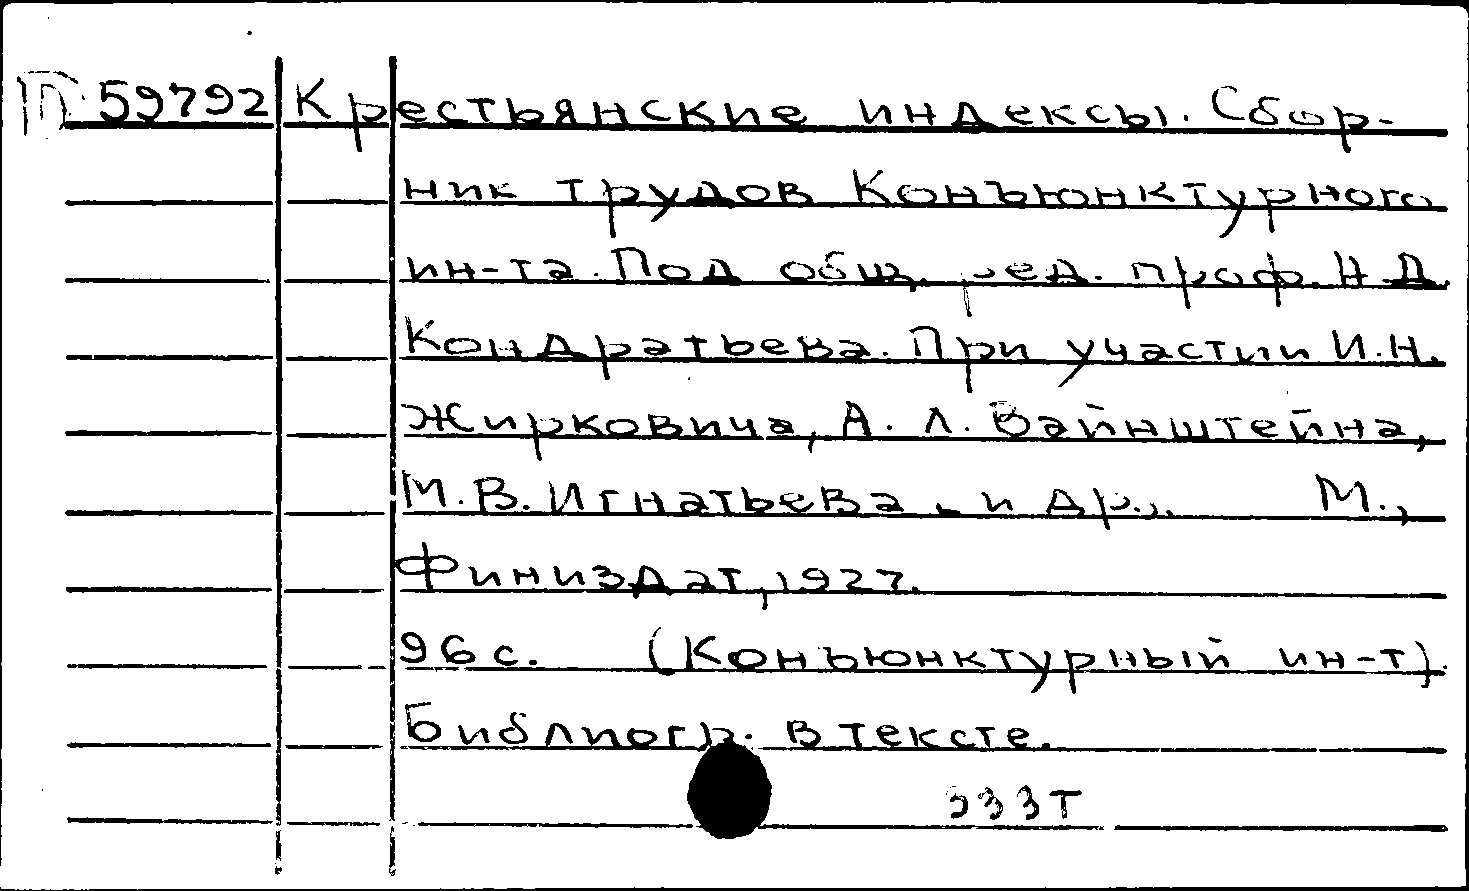 П 59792 Крестьянские индексы. Сбор-
ник трудов Конъюнктурного
ин-та. Под общ. ред. проф. Н.Д.
Кондратьева. При участии И.Н.
Жирковича, А. Л. Вайнштейна,
М.В. Игнатьева и др., М.,
Финиздат, 1927.
96 с. (Конъюнктурный ин-т).
Библиогр. в тексте.
333Т